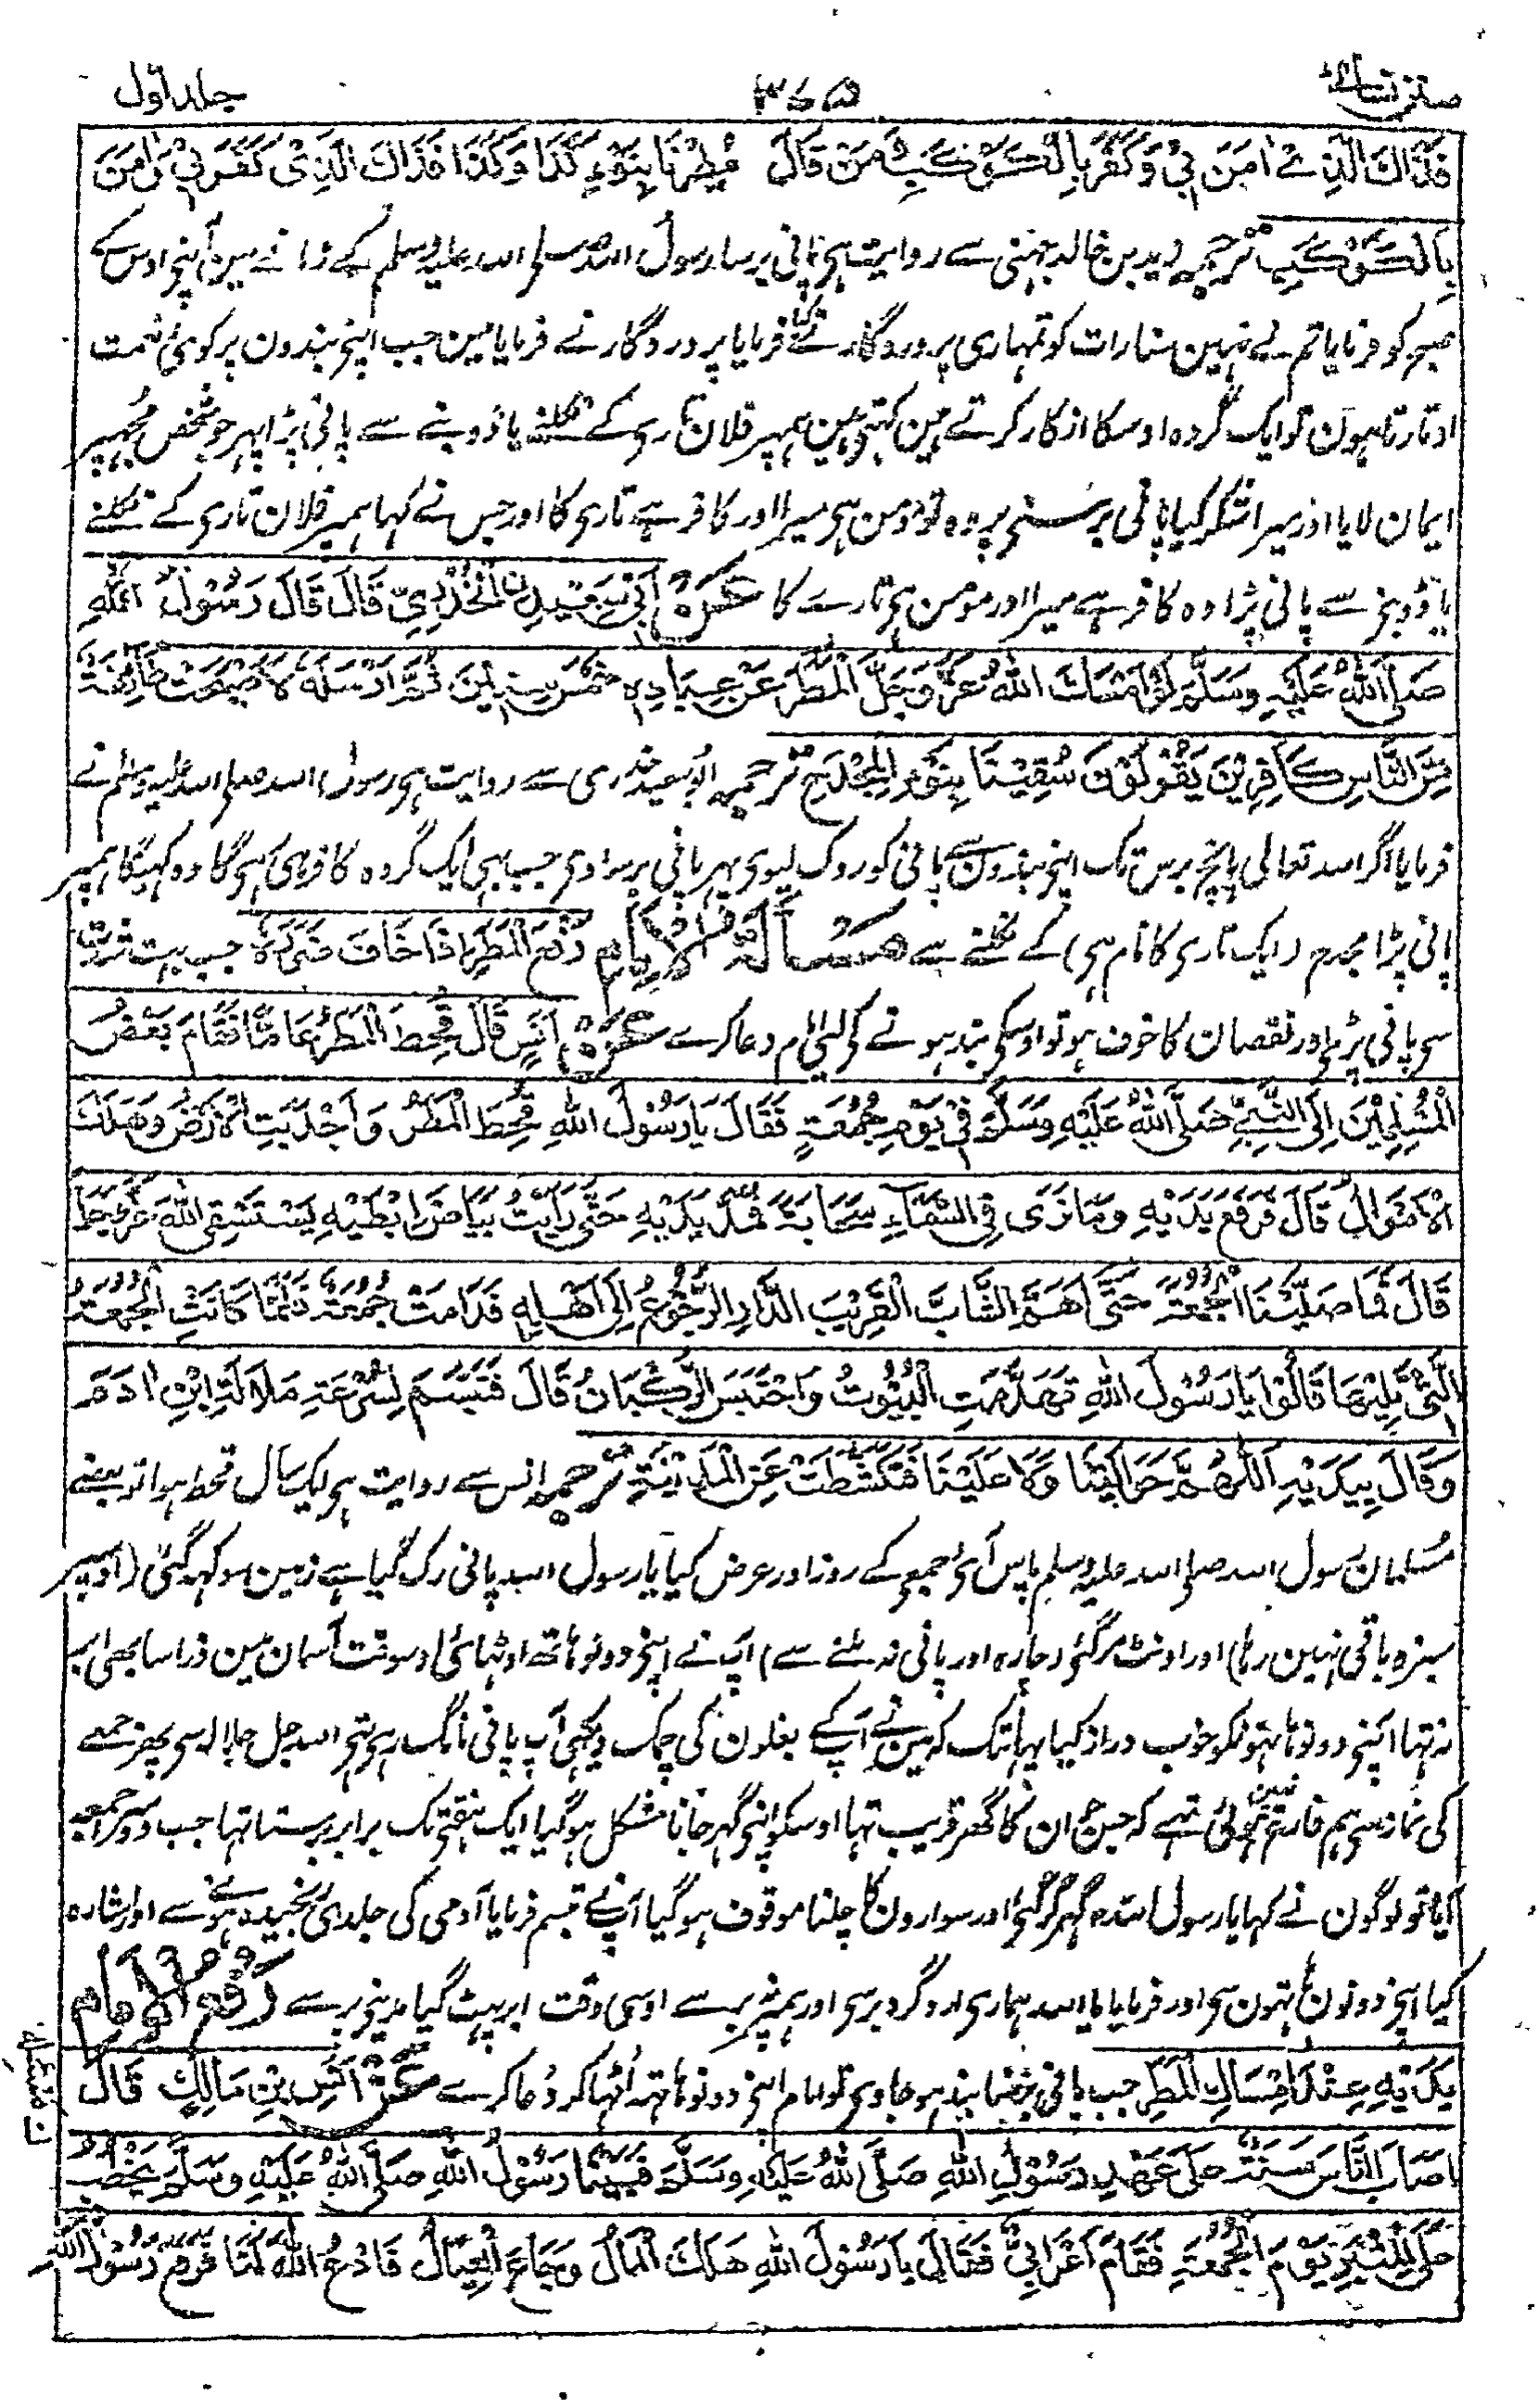 سنن نسائی ۳۷۵ جلد اول
فَذَاكَ الَّذِیْ اٰمَنَ بِیْ وَكَفَرَ بِالْكَوْكَبِ وَمَنْ قَالَ مُطِرْنَا بِنَوْءِ كَذَا وَكَذَا فَذَاكَ الَّذِیْ كَفَرَ بِیْ وَاٰمَنَ
بِالْكَوْكَبِ ترجمہ زید بن خالد جہنی سے روایت ہی پانی برسا رسول اللہ صلی اللہ علیہ وسلم کے زمانے مین آپنے اوس کے
صبح کو فرمایا تم نے نہین سنا رات کو تمہاری پروردگار نے کیا فرمایا پروردگار نے فرمایا مین جب اپنے بندون پر کوئی نعمت
اوتارتا ہون تو ایک گروہ اوسکا انکار کرتے ہین کہتے ہین ہمپر فلان تاری کے نکلنے یا ڈوبنے سے پانی پڑا پہر جو شخص مجہپر
ایمان لایا اور میرا شکر کیا پانی برسنے پر وہ تو مومن ہی میرا اور کافر ہے تاری کا اور جس نے کہا ہمپر فلان تاری کے نکلنے
یا ڈوبنے سے پانی پڑا وہ کافر ہے میرا اور مومن ہی تارے کا عَنْ اَبِیْ سَعِیْدِنِ الْخُدْرِیِّ قَالَ قَالَ رَسُوْلُ اللهِ
صَلَّی اللهُ عَلَیْهِ وَسَلَّمَ لَوْ اَمْسَكَ اللهُ عَزَّ وَجَلَّ الْمَطَرَ عَنْ عِبَادِهٖ خَمْسَ سِنِیْنَ ثُمَّ اَرْسَلَهٗ لَاَصْبَحَتْ طَائِفَةٌ
مِّنَ النَّاسِ كَافِرِیْنَ یَقُوْلُوْنَ سُقِیْنَا بِنَوْءِ الْمِجْدَحِ ترجمہ ابو سعید خدری سے روایت ہی رسول اللہ صلی اللہ علیہ وسلم نے
فرمایا اگر اللہ تعالی پانچ برس تک اپنے بندون سے پانی کو روک لیوی پہر پانی برساوی جب بہی ایک گروہ کافر ہی رہی گا وہ کہیگا ہمپر
پانی پڑا مجدح (ایک تاری کا نام ہی) کے نکلنے سے مَسْأَلَةُ الْاِمَامِ رَفْعَ الْمَطَرِ اِذَا خَافَ ضَرَرَهٗ جب بہت شدت
سی پانی پڑی اور نقصان کا خوف ہو تو اوسکی بند ہونے کی لئی امام دعا کرے عَنْ اَنَسٍ قَالَ قُحِطَ الْمَطَرُ عَامًا فَقَامَ بَعْضُ
الْمُسْلِمِیْنَ اِلَی النَّبِیِّ صَلَّی اللهُ عَلَیْهِ وَسَلَّمَ فِیْ یَوْمِ جُمُعَةٍ فَقَالَ یَا رَسُوْلَ اللهِ قُحِطَ الْمَطَرُ وَاَجْدَبَتِ الْاَرْضُ وَهَلَكَ
الْاَمْوَالُ قَالَ فَرَفَعَ یَدَیْهِ وَمَا نَرٰی فِی السَّمَاءِ سَحَابَةً فَمَدَّ یَدَیْهِ حَتّٰی رَاَیْتُ بَیَاضَ اِبْطَیْهِ یَسْتَسْقِی اللهَ عَزَّ وَجَلَّ
قَالَ فَمَا صَلَّیْنَا الْجُمُعَةَ حَتّٰی اَهَمَّ الشَّابَّ الْقَرِیْبَ الدَّارِ الرُّجُوْعُ اِلٰی اَهْلِهٖ فَدَامَتْ جُمُعَةٌ فَلَمَّا كَانَتِ الْجُمُعَةُ
الَّتِیْ تَلِیْهَا قَالُوْا یَا رَسُوْلَ اللهِ تَهَدَّمَتِ الْبُیُوْتُ وَاحْتَبَسَ الرُّكْبَانُ قَالَ فَتَبَسَّمَ لِسُرْعَةِ مَلَالَةِ ابْنِ اٰدَمَ
وَقَالَ بِیَدَیْهِ اَللّٰهُمَّ حَوَالَیْنَا وَلَا عَلَیْنَا فَتَكَشَّطَتْ عَنِ الْمَدِیْنَةِ ترجمہ انس سے روایت ہی ایک سال قحط ہوا تو بعضے
مسلمان رسول اللہ صلی اللہ علیہ وسلم پاس آئی جمعی کے روز اور عرض کیا یا رسول اللہ پانی رک گیا ہے زمین سوکہہ گئی (اوسپر
سبزہ باقی نہین رہا) اور اونٹ مرگئی (چارہ اور پانی نہ ملنے سے) آپ نے اپنے دونو ہاتھ اوٹہائی اوسوقت آسمان مین ذرا سا بھی ابر
نہ تہا آپنے دونو ہاتہونکو خوب دراز کیا یہانتک کہ مین نے آپ کے بغلون کی چمک دیکھی آپ پانی مانگ رہی تہے اللہ جل جلالہ سی پھر جمعے
کی نماز سے ہم فارغ نہین ہوئی تہے کہ جس جوان کا گھر قریب تہا اوسکو اپنے گہر جانا مشکل ہوگیا ایک ہفتے تک برابر برستا تہا جب دوسرا جمعہ
آیا تو لوگون نے کہا یا رسول اللہ گہر گرگئے اور سوارون کا چلنا موقوف ہوگیا آپ نے تبسم فرمایا آدمی کی جلدی رنجیدہ ہونے سے اور اشارہ
کیا اپنے دونون ہاتہون سی اور فرمایا یا اللہ ہماری اردگرد برسی اور ہمپر نہ برسے اوسی وقت ابر پہٹ گیا مدینے پر سے رَفْعُ الْاِمَامِ
یَدَیْهِ عِنْدَ اِمْسَاكِ الْمَطَرِ جب پانی پڑنا بند ہو جاوی تو امام اپنے دونو ہاتہہ اٹہا کر دعا کرے عَنْ اَنَسِ بْنِ مَالِكٍ قَالَ
اَصَابَ النَّاسَ سَنَةٌ عَلٰی عَهْدِ رَسُوْلِ اللهِ صَلَّی اللهُ عَلَیْهِ وَسَلَّمَ فَبَیْنَمَا رَسُوْلُ اللهِ صَلَّی اللهُ عَلَیْهِ وَسَلَّمَ یَخْطُبُ
عَلَی الْمِنْبَرِ یَوْمَ الْجُمُعَةِ فَقَامَ اَعْرَابِیٌّ فَقَالَ یَا رَسُوْلَ اللهِ هَلَكَ الْمَالُ وَجَاعَ الْعِیَالُ فَادْعُ اللهَ لَنَا فَرَفَعَ رَسُوْلُ اللهِ